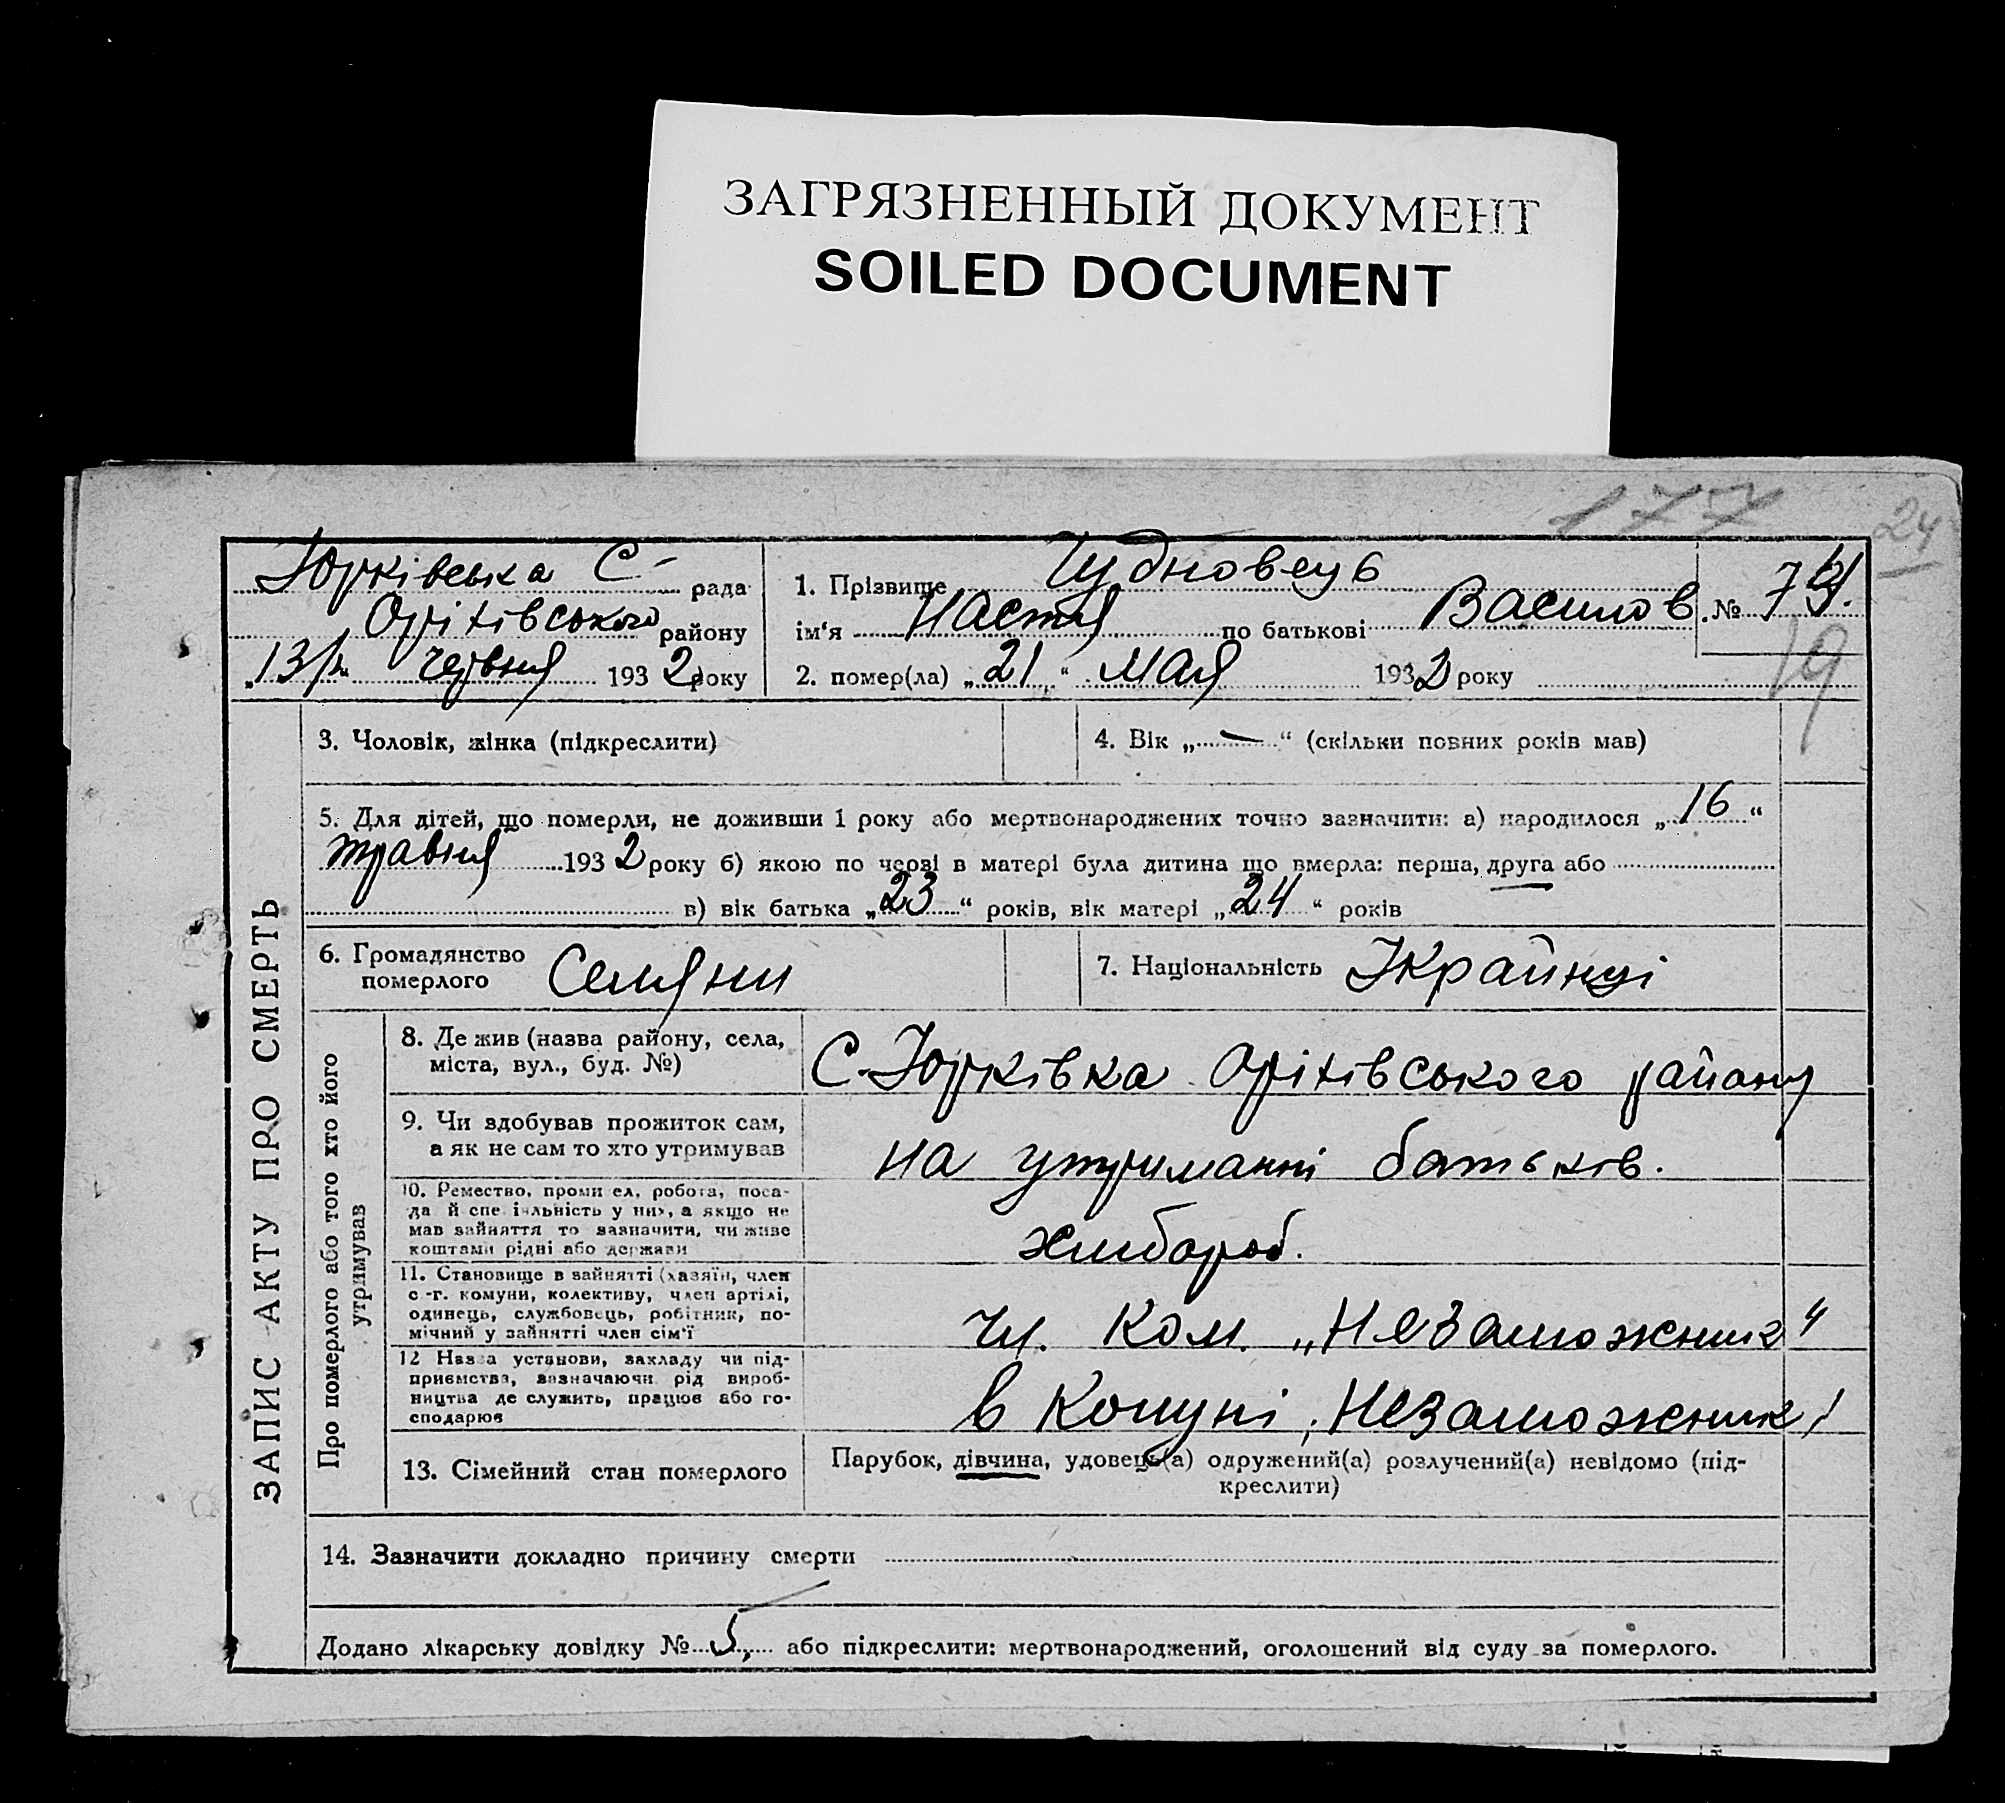 ЗАГРЯЗНЕННЫЙ ДОКУМЕНТ
SOILED DOCUMENT
177
24
Юрківська С- рада
Оріхівського району
„13/„ червня 1932 року
1. Прізвище Чудновець
ім‘я Настя по батькові Василов.
2. помер(ла) „21“ мая 1932 року
№ 79.
19
ЗАПИС АКТУ ПРО СМЕРТЬ
3. Чоловік, жінка (підкреслити)
4. Вік „—“ (скільки повних років мав)
5. Для дітей, що померли, не доживши 1 року або мертвонароджених точно зазначити: а) народилося „16“
травня 1932 року б) якою по черзі в матері була дитина що вмерла: перша, друга або
в) вік батька „23“ років, вік матері „24“ років
6. Громадянство
померлого Селяни
7. Національність Українці
Про померлого або того хто його
утримував
8. Де жив (назва району, села,
міста, вул., буд. №)
С. Юрківка Оріхівського району
9. Чи здобував прожиток сам,
а як не сам то хто утримував
на утриманні батьків.
10. Ремество, проми ел, робота, поса-
да й спе іяльність у них, а якщо не
мав зайняття то зазначити, чи живе
коштами рідні або держави
хлібороб.
11. Становище в зайнятті (хазяїн, член
с.-г. комуни, колективу, член артілі,
одинець, службовець, робітник, по-
мічний у зайнятті член сім‘ї
чл. ком. „Незаможник“
12 Назва установи, закладу чи під-
приємства, зазначаючи рід вироб-
ництва де служить, працює або го-
сподарює
в Комуні „Незаможник“
13. Сімейний стан померлого
Парубок, дівчина, удовець(а) одружений(а) розлучений(а) невідомо (під-
креслити)
14. Зазначити докладно причину смерти
Додано лікарську довідку № 5, або підкреслити: мертвонароджений, оголошений від суду за померлого.